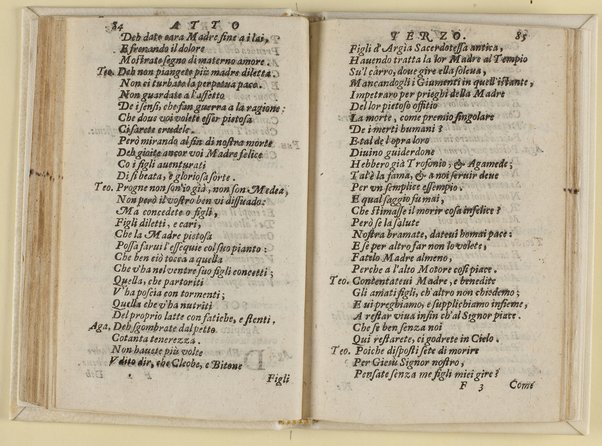 84 ATTO
Deh date cara Madre fine a i lai,
E frenando il dolore
Mostrate segno di materno amore.
Teo. Deh non piangete più madre diletta
Non ci turbate la perpetua pace.
Non guardate a l'affetto
De i sensi, che fan guerra a la ragione:
Che dove voi volete esser pietosa
Ci sarete crudele.
Però mirando al fin di nostra morte
Deh gioite ancor voi Madre felice
Co i figli auenturati
Di sì beata, e gloriosa sorte.
Teo. Progne non son'io già, non son Medea,
Non però il vostro ben vi dissuado:
Ma concedete o figli,
Figli diletti, e cari,
Che la Madre pietosa
Possa farui l'essequie col suo pianto:
Che ben ciò tocca a quella
Che v'ha nel ventre suo figli concetti;
Quella, che partoriti
V'ha poscia con tormenti;
Quella che v'ha nutriti
Del proprio latte con fatiche, e stenti.
Aga. Deh sgombrate dal petto
Cotanta tenerezza.
Non hauste più volte
Vdito dir, che Cleobe, e Bitone
Figli
TERZO. 85
Figli d'Argia Sacerdotessa antica,
Hauendo tratta la lor Madre al Tempio
Su'l carro, doue gire ella soleua,
Mancandogli i Giumenti in quell'istante,
Impetraro per prieghi della Madre
Del lor pietoso offitio
La morte, come premio singolare
De i merti humani?
E tal de l'opra loro
Diuino guiderdone
Hebber già Trofonio, & Agamede;
Tal'è la fama, & a noi seruir deue
Per vn semplice essempio.
E qual saggio fu mai,
Che stimasse il morir cosa infelice?
Però se la salute
Nostra bramate, dateui homai pace:
E se per altro far non lo volete,
Fatelo Madre almeno,
Perche a l'alto Motore così piace.
Teo. Contentateui Madre, e benedite
Gli amati figli, ch'altro non chiedemo;
E vi preghiamo, e supplichiamo insieme,
A restar viua insin ch'al Signor piace.
Che se ben senza noi
Qui restarete, ci godrete in Cielo.
Teo. Poiche disposti sete di morire
Per Giesù Signor nostro,
Pensate senza me figli miei gire?
F 3 Come